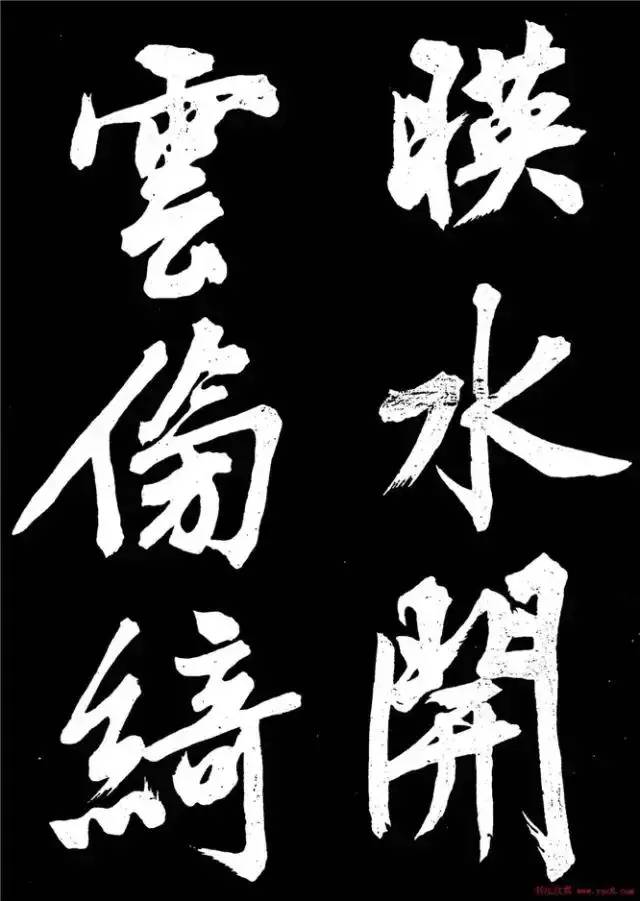 暎水開
雲傍綺
书法欣赏 www.yac8.com